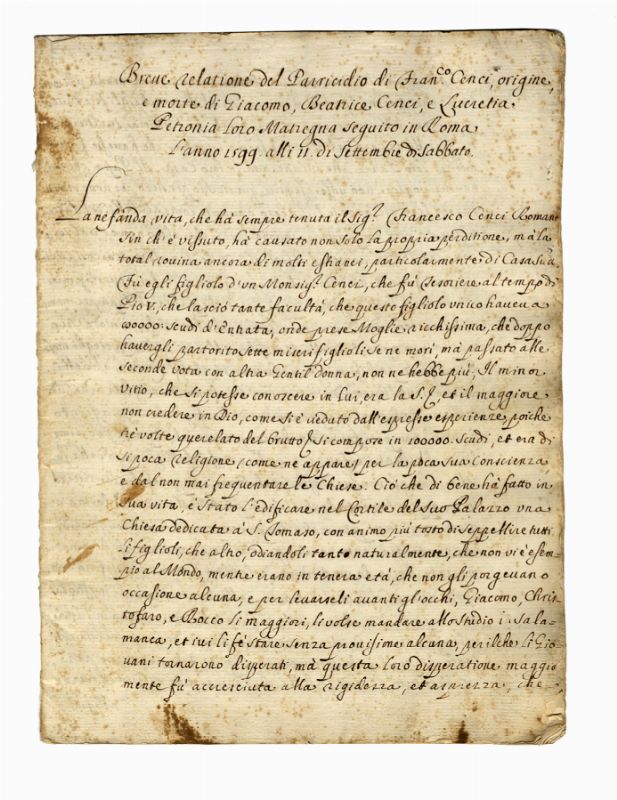 Breue relatione del Parricidio di Fran.co Cenci, origine,
e morte di Giacomo, Beatrice Cenci, e Lucretia
Petronia loro Matregna seguito in Roma
l'anno 1599. alli 11. di Settembre di Sabbato.
La nefanda vita, che hà sempre tenuta il Sig.r Francesco Cenci Roman
sin ch'è vissuto, hà causato non solo la propria perditione, mà la
total rouina ancora di molti estranei, particolarmente di Casa Sua
Fù egli figliolo d'un Monsig.r Cenci, che fù Tesoriere al tempo di
Pio V, che lasciò tante facultà, che questo figliolo unico haueua
scudi d'Entrata, onde prese Moglie ricchissima, che doppo
hauergli partorito sette miseri figlioli se ne morì, mà passato alle
seconde vota con altra Gentildonna, non ne hebbe più; Il minor
vitio, che si potesse conoscere in lui, era la S. et il maggiore
non credere in Dio, come si è veduto dall'espresse esperienze, poiche
trè volte querelato del brutto si compose in 100000. scudi, et era di
si poca religione (come ne appare) per la poca sua Conscienza
e dal non mai frequentare le Chiese. Ciò che di bene hà fatto in
sua vita, è stato l'edificare nel Cortile del suo Palazzo una
Chiesa dedicata à S. Tomaso, con animo più tosto di seppellire tutti
li figlioli, che altro, odiandoli tanto naturalmente, che non vi è esem-
pio al Mondo, mentre erano in tenera età, che non gli porgeuano
occasione alcuna, e per leuarseli auanti gl'occhi, Giacomo, Christ
tofaro, e Rocco li maggiori, li volse mandare allo studio in Sala=
manca, et iui li fè stare senza prouisione alcuna, per il che li Gio=
uani tornarono disperati, mà questa loro disperatione maggior
mente fù accresciuta alla rigidezza, et asprezza, che-